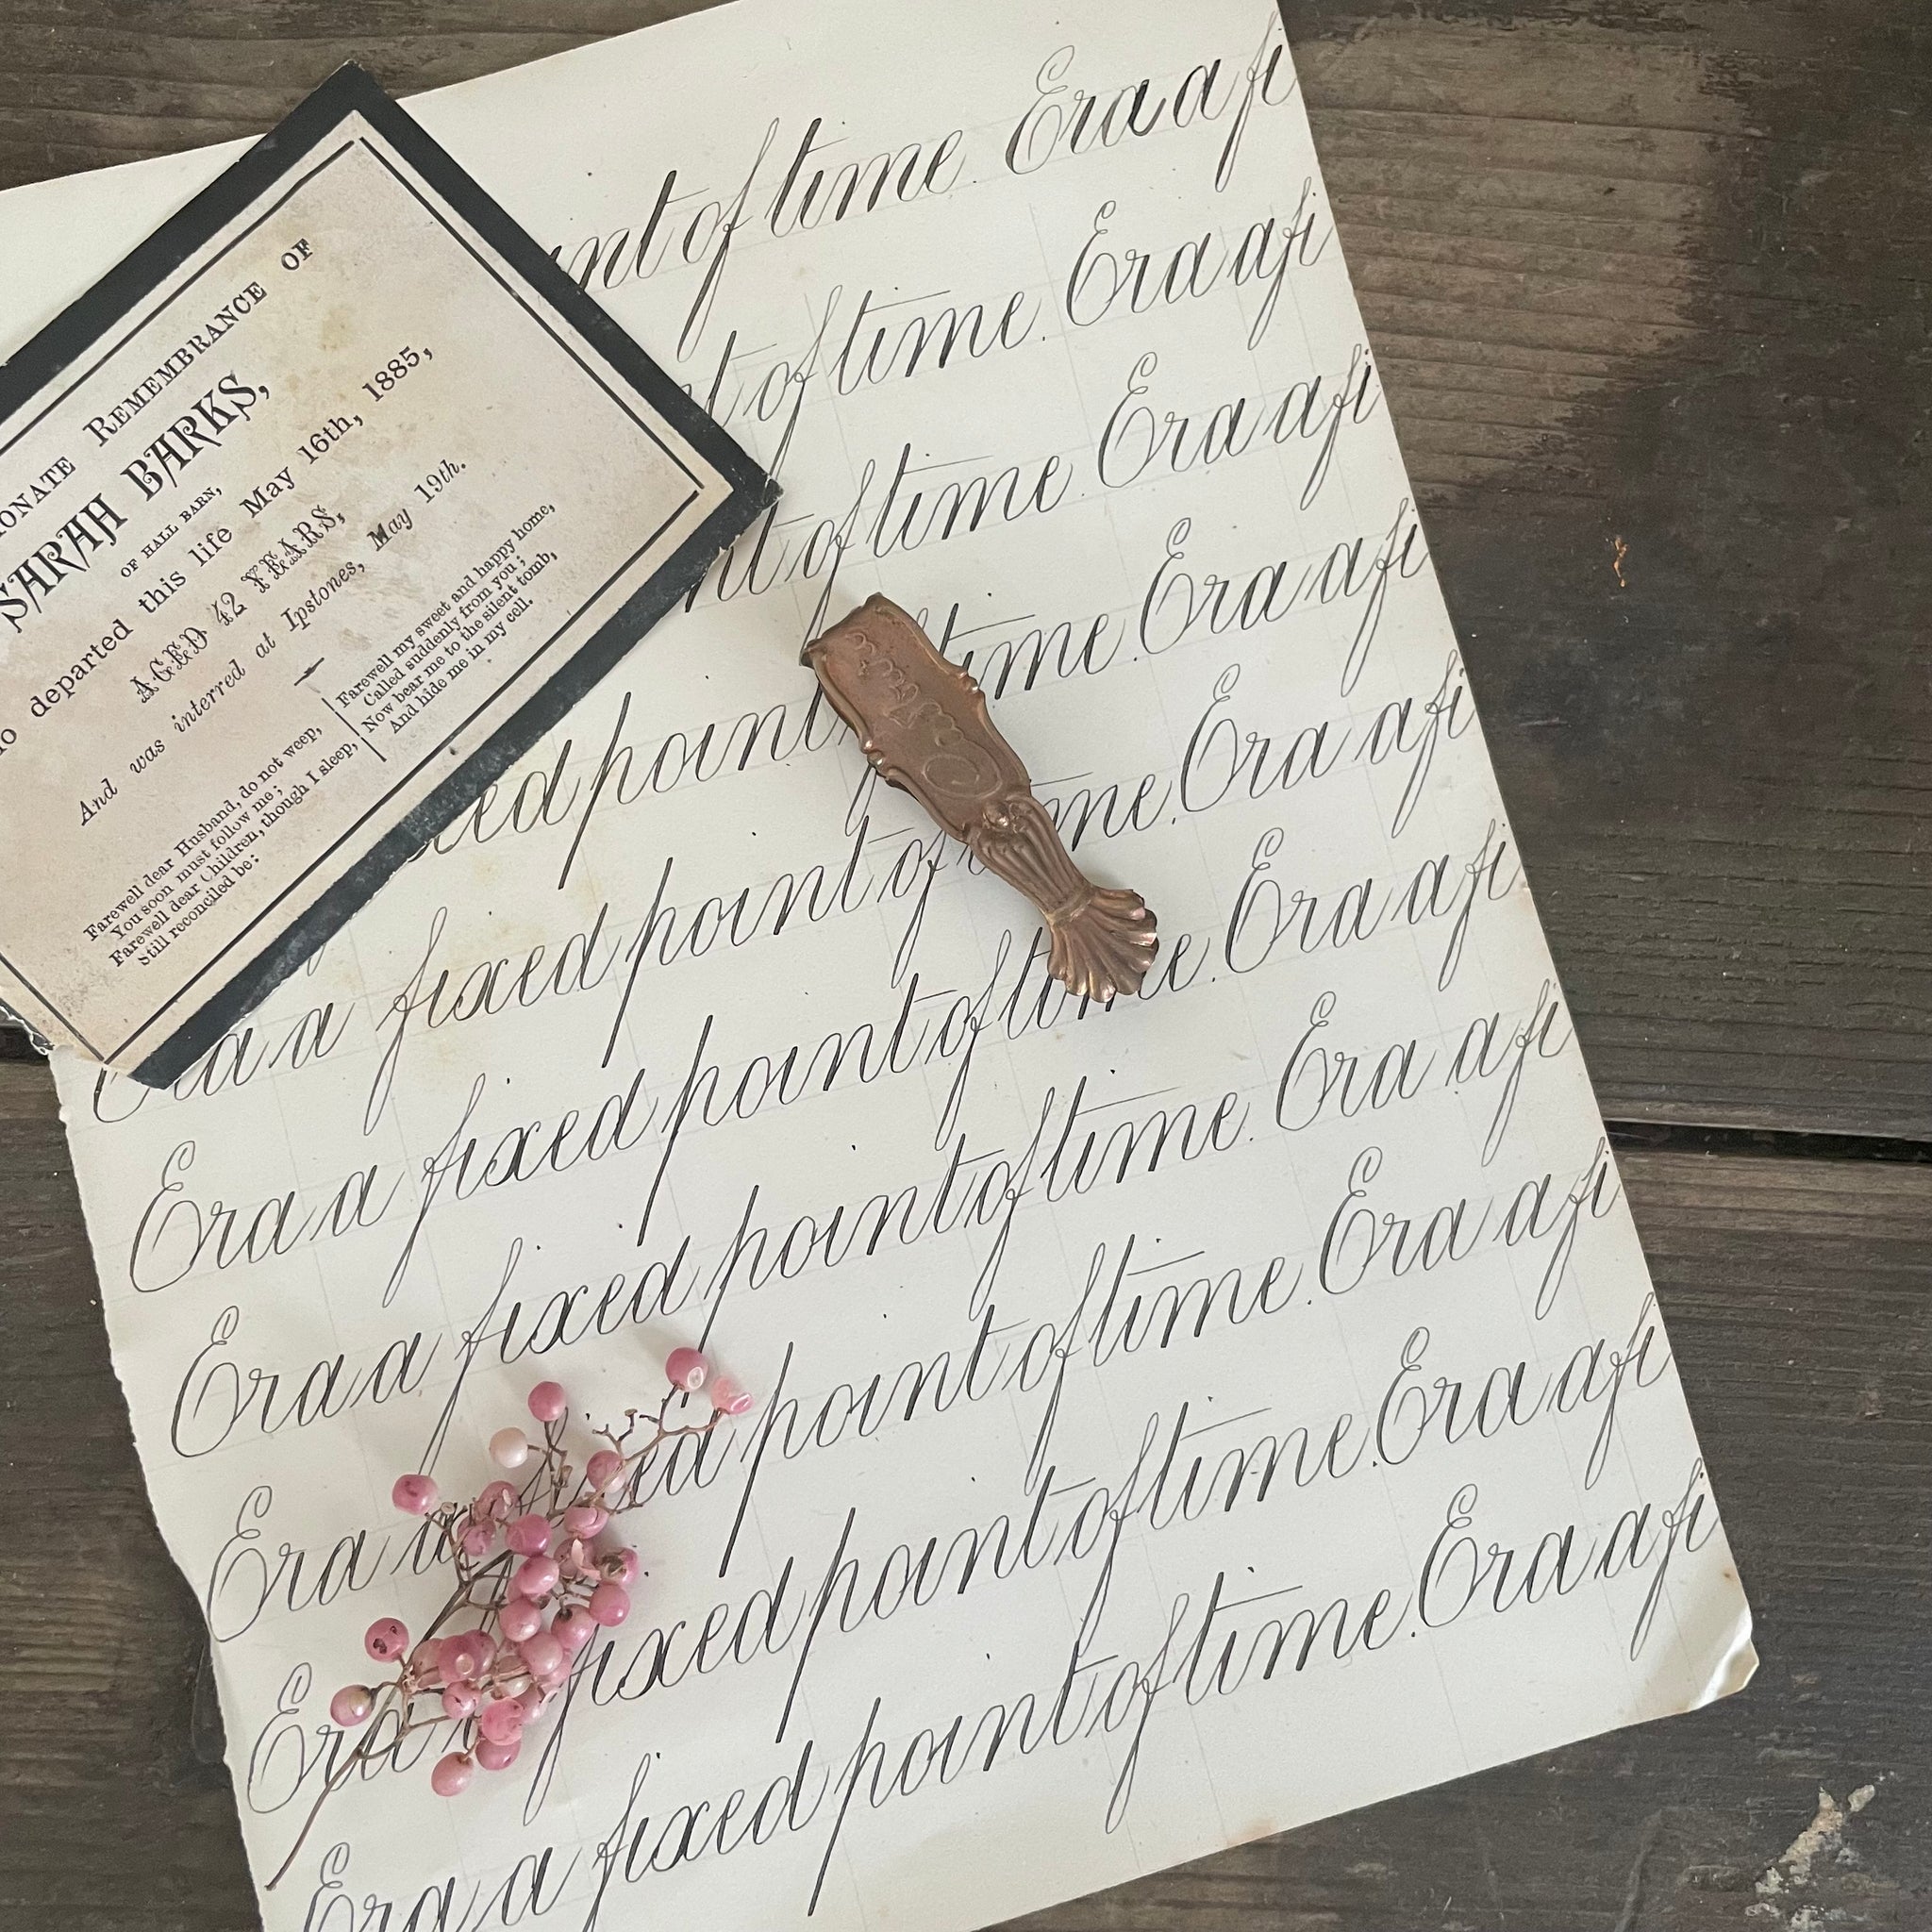 REMEMBRANCE OF
SARAH BARKS,
OF HALL BARN,
departed this life May 16th, 1885,
AGED 42 YEARS,
And was interred at Ipstones, May 19th.
Farewell dear Husband, do not weep,
You soon must follow me;
Farewell dear Children, though I sleep,
Still reconciled be:
Farewell my sweet and happy home,
Called suddenly from you;
Now bear me to the silent tomb,
And hide me in my cell.
of time. Era a fi
t of time. Era a fi
nt of time. Era a fi
xed point time. Era a fi
Era a fixed point of time. Era a fi
Era a fixed point of time. Era a fi
Era a fixed point of time. Era a fi
Era a fixed point of time. Era a fi
Era a fixed point of time. Era a fi
Era a fixed point of time. Era a fi